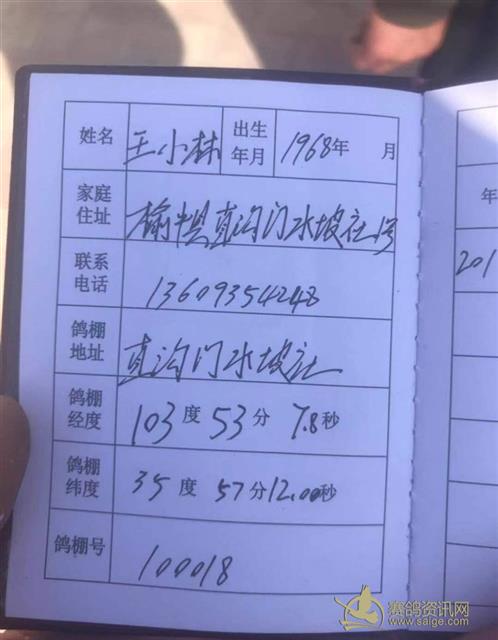 姓名 王小林 出生年月 1968年 月
家庭住址 榆中县直沟门水坡社1号
联系电话 13609354248
鸽棚地址 直沟门水坡社
鸽棚经度 103度 53分 7.8秒
鸽棚纬度 35度 57分 12.00秒
鸽棚号 100018
201
赛鸽资讯网
www.saige.com